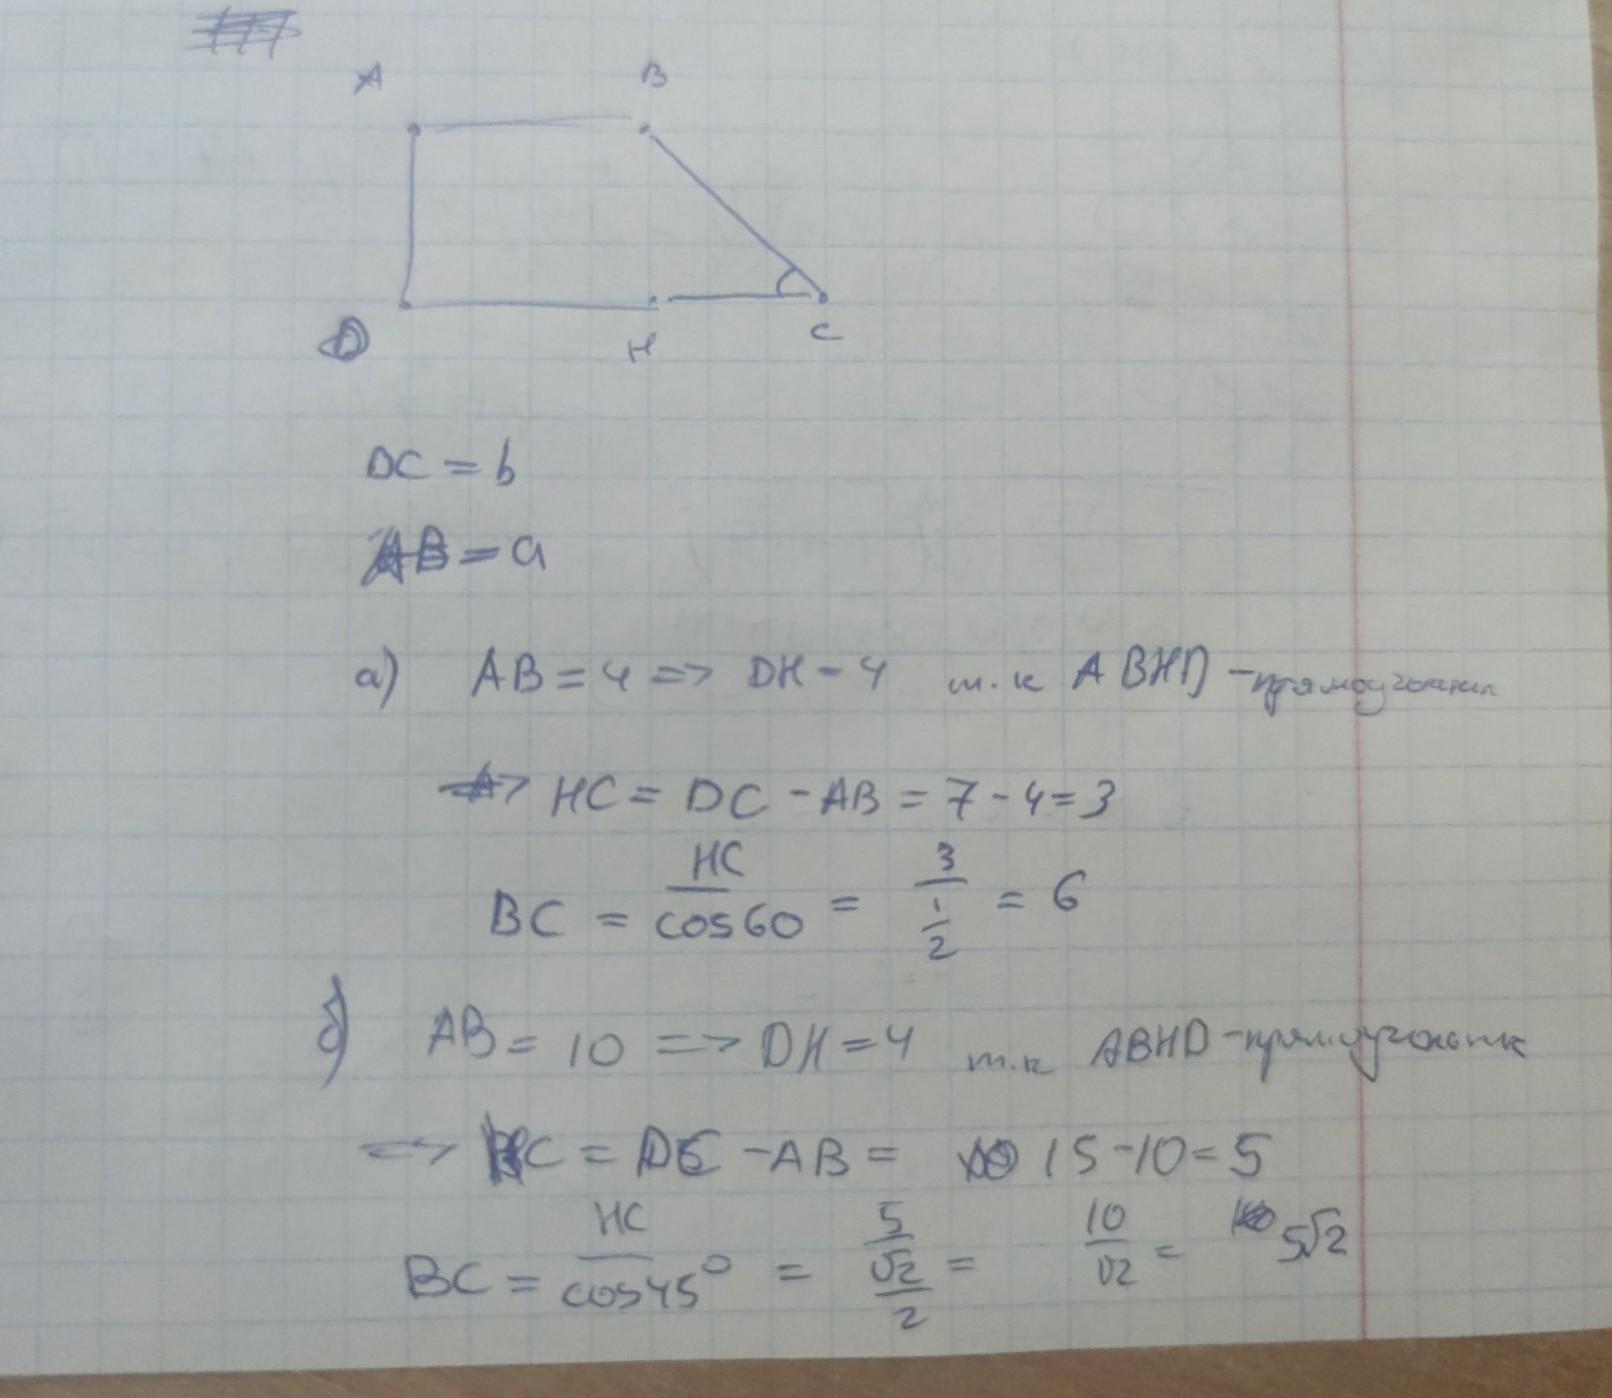 A B
D H C
DC = b
AB = a
а) AB = 4 => DH - 4 т.к ABHD - прямоугольник
=> HC = DC - AB = 7 - 4 = 3
BC = HC / cos60 = 3 / (1/2) = 6
б) AB = 10 => DH = 4 т.к ABHD - прямоугольник
=> HC = DC - AB = 15 - 10 = 5
BC = HC / cos45° = 5 / (√2/2) = 10/√2 = 5√2